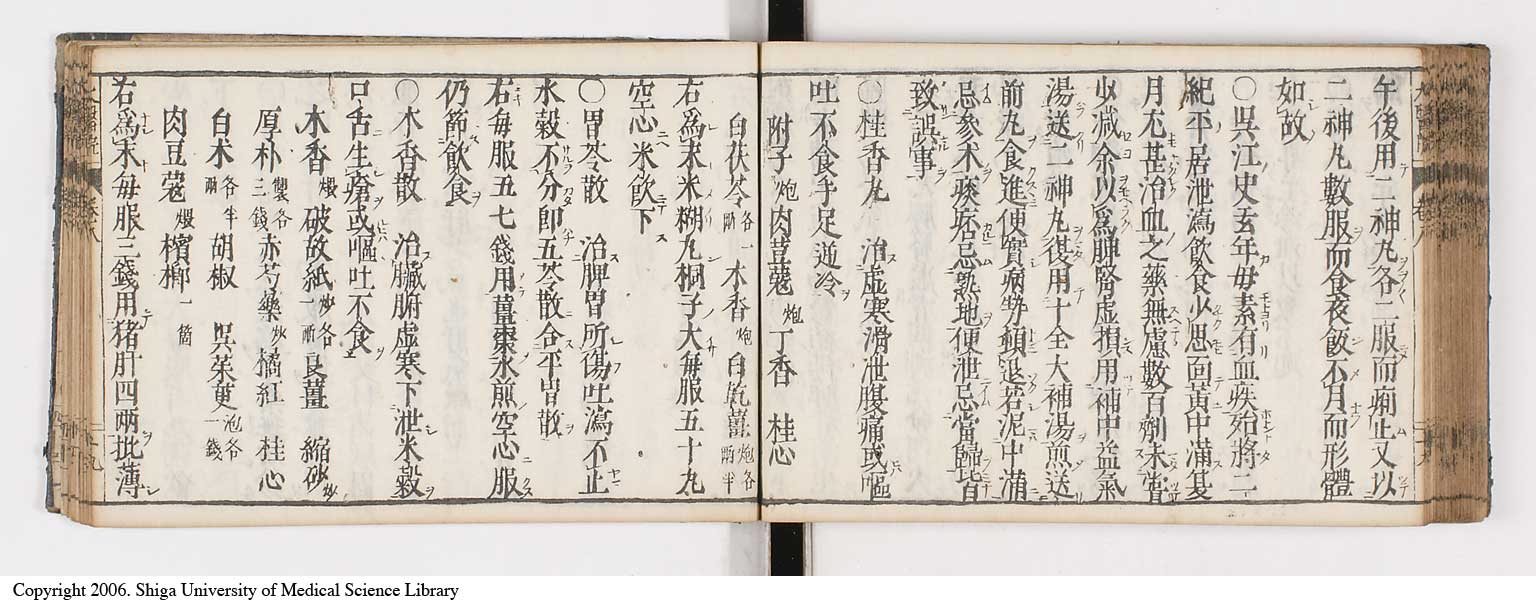 午後用二神丸各二服而痢止又以
二神丸數服而食夜飯不月而形體
如故
○吳江史玄年母素有血疾殆將二
紀平居泄瀉飲食少思面黃中滿夏
月尤甚治血之藥無慮數百劑未嘗
少減余以爲脾腎虛損用補中益氣
湯送二神丸復用十全大補湯煎送
前丸食進便實病勢頓退若泥中滿
忌參朮痰痞忌熟地便泄忌當歸皆
致誤事
○桂香丸 治虛寒滑泄腹痛或嘔
吐不食手足逆冷
附子炮 肉荳蔲炮 丁香 桂心
白茯苓各一兩 木香炮 白乾薑炮各兩半
右爲末米糊丸桐子大每服五十丸
空心米飲下
○胃苓散 治脾胃所傷吐瀉不止
水穀不分卽五苓散合平胃散
右每服五七錢用薑棗水煎空心服
仍節飲食
○木香散 治臟腑虛寒下泄米穀
口舌生瘡或嘔吐不食
木香煨 破故紙炒各一兩 良薑 縮砂炒
厚朴製各三錢 赤芍藥炒 橘紅 桂心
白朮各半兩 胡椒 吳茱萸泡各一錢
肉豆蔲煨 檳榔一箇
右爲末每服三錢用猪肝四兩批薄
Copyright 2006. Shiga University of Medical Science Library